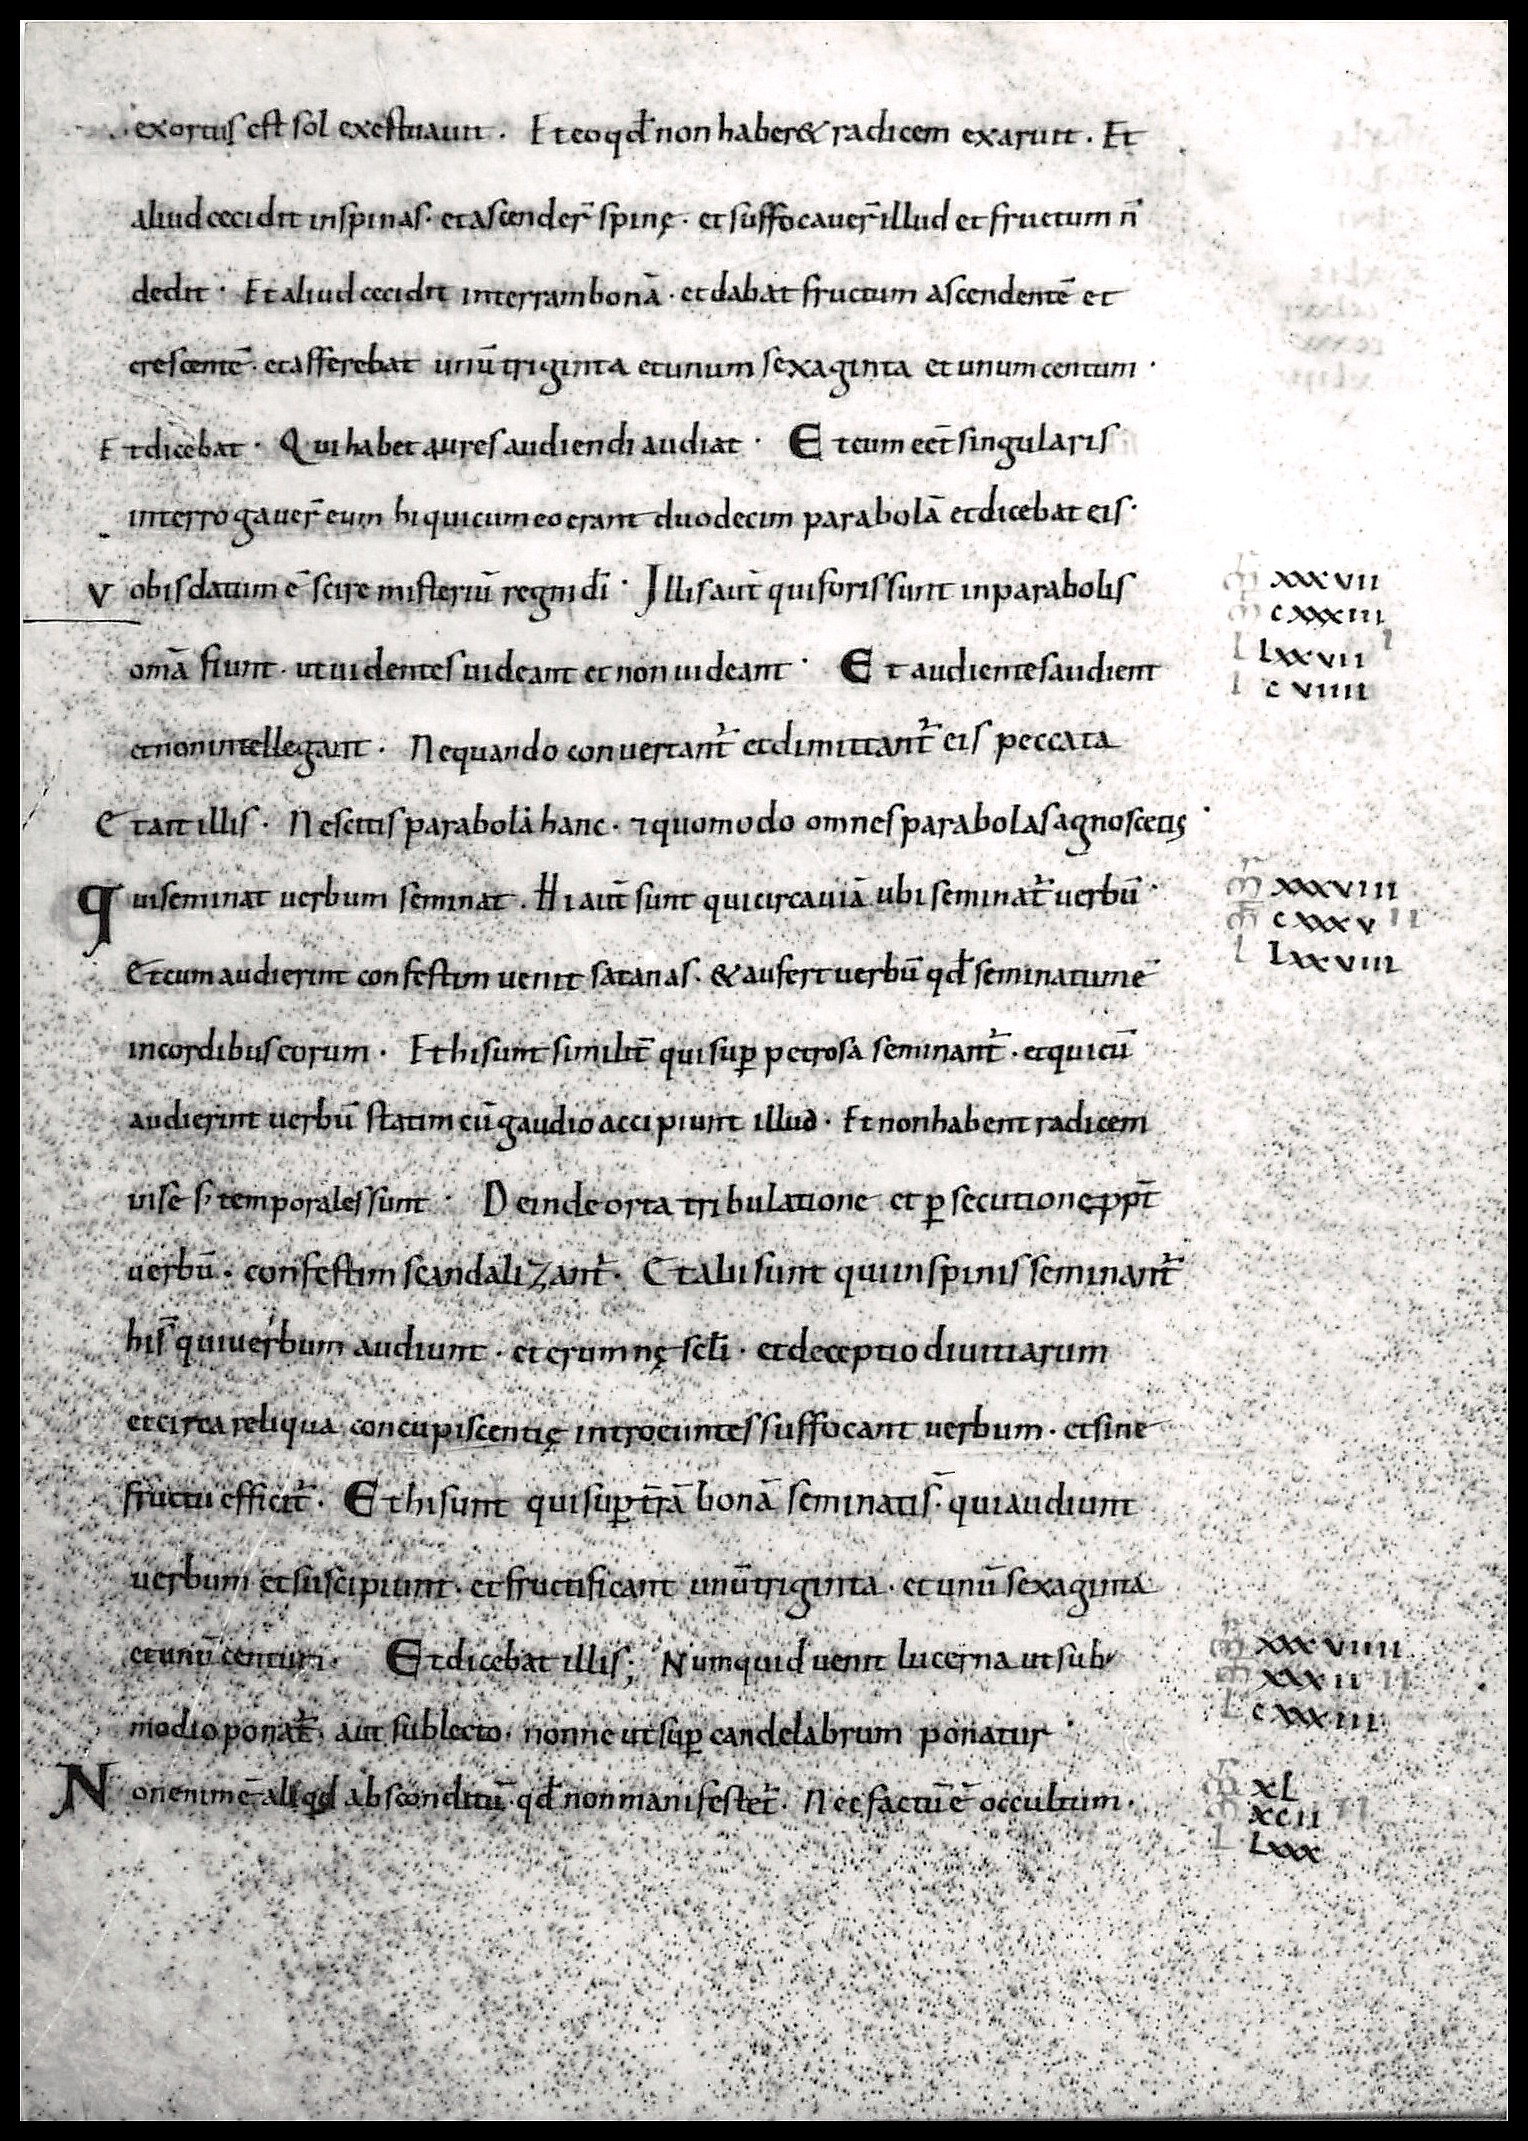 exortus est sol exestuauit . Et eo qđ non haber& radicem exaruit . Et
aliud cecidit in spinas . et ascender̄ spinę . et suffocauer̄ illud et fructum n̄
dedit . Et aliud cecidit in terram bonā . et dabat fructum ascendentē et
crescentē . et afferebat unū triginta et unum sexaginta et unum centum .
Et dicebat . Qui habet aures audiendi audiat . Et cum eēt singularis
interrogauer̄ eum hi qui cum eo erant duodecim parabolā et dicebat eis .
Vobis datum ē scire misteriū regni dī . Illis aut̄ qui foris sunt in parabolis
xxxvii
cxxxiii
omā fiunt . ut uidentes uideant et non uideant . Et audientes audient
Lxxvii
cviiii
et non intellegant . Nequando conuertant᷑ et dimittant᷑ eis peccata
Et ait illis . Nescitis parabolā hanc . ⁊ quomodo omnes parabolas agnoscetis .
qui seminat uerbum seminat . Hi aut̄ sunt qui circa uiā ubi seminat᷑ uerbū .
xxxviii
cxxxvii
Et cum audierint confestim uenit satanas . & aufert uerbū qđ seminatum ē
Lxxviii
in cordibus eorum . Et hi sunt similit̄ qui suꝑ petrosa seminant᷑ . et qui cū
audierint uerbū statim cū gaudio accipiunt illud . Et non habent radicem
in se s; temporales sunt . Deinde orta tribulatione et ꝑsecutione ꝓpt̄
uerbū . confestim scandalizant᷑ . Et alii sunt qui in spinis seminant᷑
his̄ qui uerbum audiunt . et erumnę scl̄i . et deceptio diuitiarum
et circa reliqua concupiscentię introeuntes suffocant uerbum . et sine
fructu efficit᷑ . Et hi sunt qui suꝑ tr̄ā bonā seminatis̄ . qui audiunt
uerbum et suscipiunt . et fructificant unū triginta . et unū sexaginta
et unū centum . Et dicebat illis ; Numquid uenit lucerna ut sub
xxxviiii
xxxii ii
modio ponat᷑ . aut sub lecto . nonne ut suꝑ candelabrum ponatur .
cxxxiii
Non enim ē aliqđ absconditū . qđ non manifestet᷑ . Nec factū ē occultum .
xL
xcii ii
Lxxx